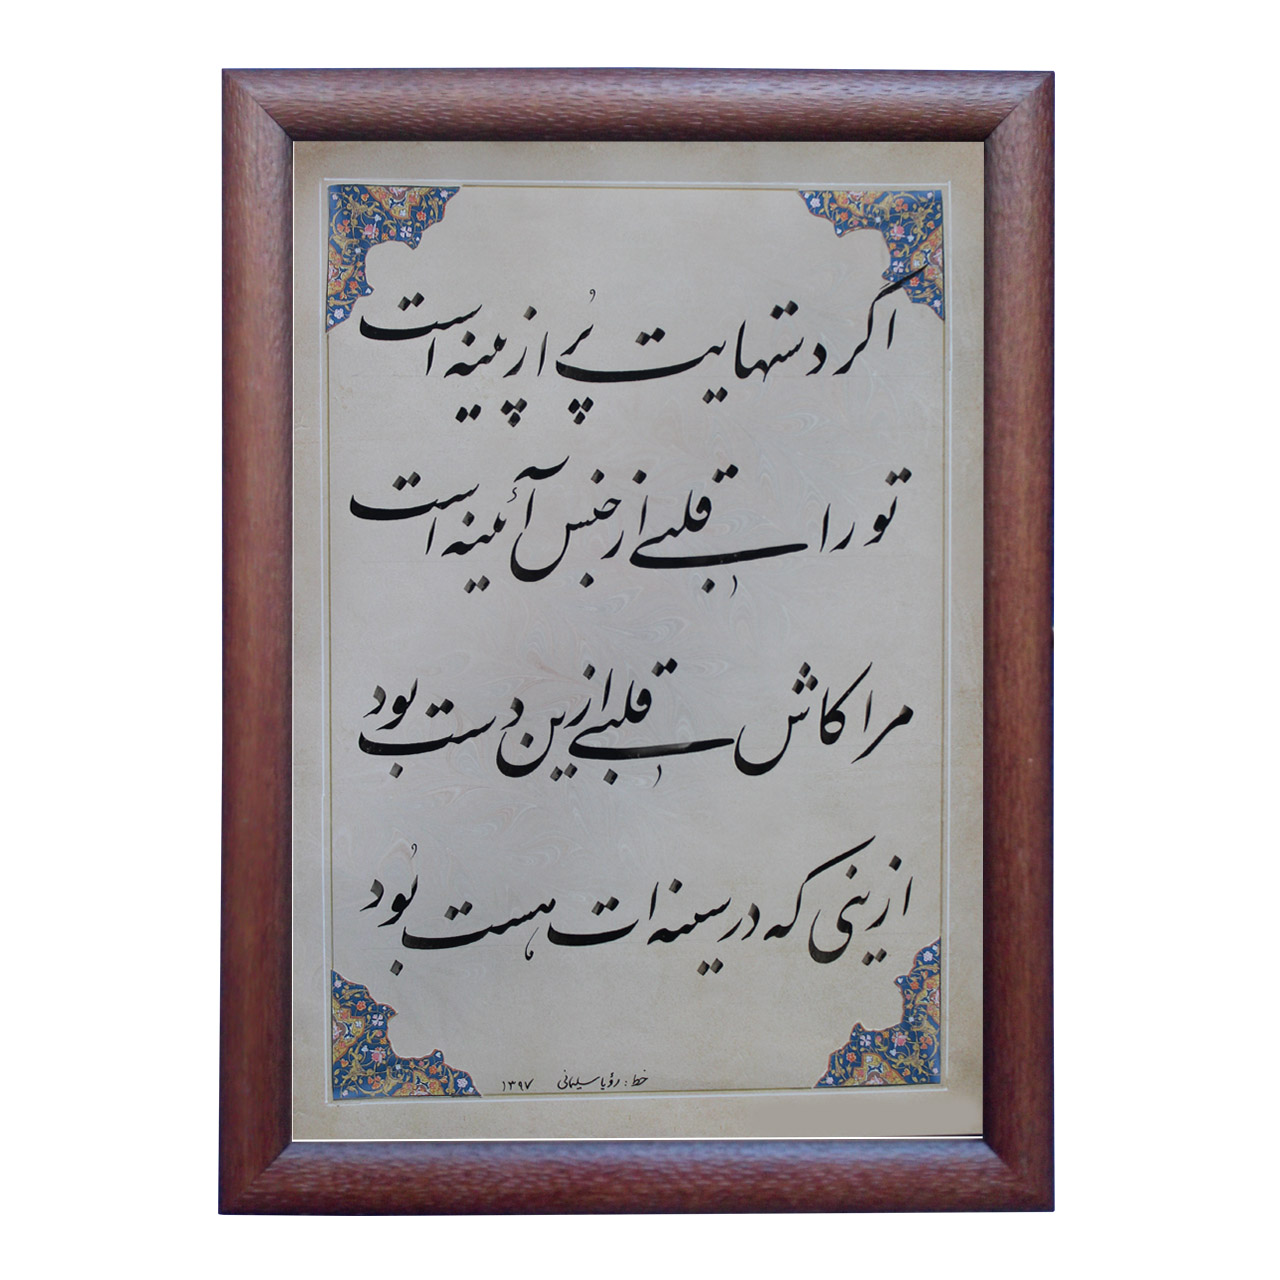 اگر دستهایت پُر از پینه است
تو را قلبی از جنس آئینه است
مرا کاش قلبی ازین دست بود
ازینی که در سینه ات هست بُود
خط: رؤیا سلیمانی ۱۳۹۷